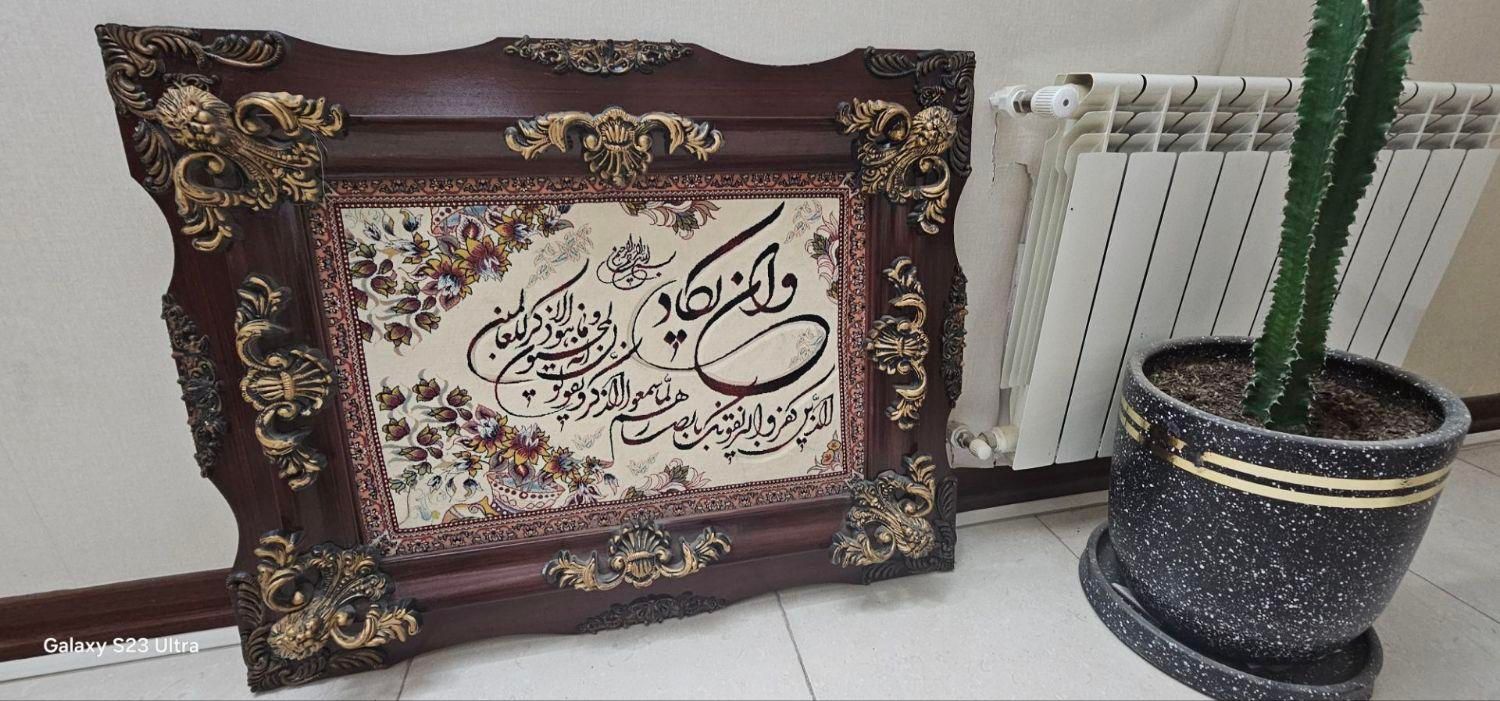 بسم الله الرحمن الرحیم
وان یکاد
الذین کفروا لیزلقونک بابصارهم
لما سمعوا الذکر و یقولون
انه لمجنون
و ما هو الا ذکر للعالمین
Galaxy S23 Ultra